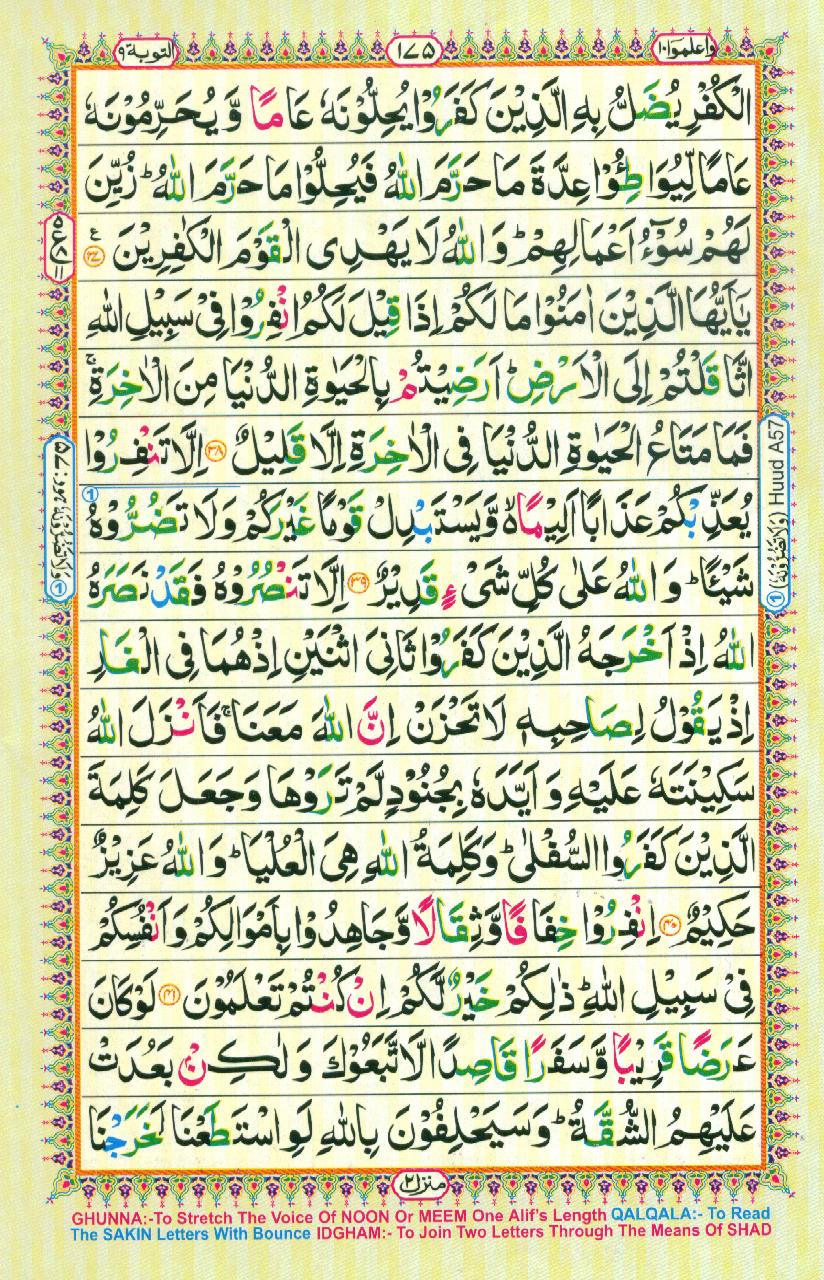 واعلموا ١٠
١٧٥
التوبة ٩
الْكُفْرِ يُضَلُّ بِهِ الَّذِيْنَ كَفَرُوْا يُحِلُّوْنَهٗ عَامًا وَّ يُحَرِّمُوْنَهٗ
عَامًا لِّيُوَاطِـُٔوْا عِدَّةَ مَا حَرَّمَ اللّٰهُ فَيُحِلُّوْا مَا حَرَّمَ اللّٰهُ ؕ زُيِّنَ
لَهُمْ سُوْٓءُ اَعْمَالِهِمْ ؕ وَ اللّٰهُ لَا يَهْدِى الْقَوْمَ الْكٰفِرِيْنَ ع ٣٧
يٰۤاَيُّهَا الَّذِيْنَ اٰمَنُوْا مَا لَكُمْ اِذَا قِيْلَ لَكُمُ انْفِرُوْا فِىْ سَبِيْلِ اللّٰهِ
اثَّاقَلْتُمْ اِلَى الْاَرْضِ ؕ اَرَضِيْتُمْ بِالْحَيٰوةِ الدُّنْيَا مِنَ الْاٰخِرَةِ ۚ
فَمَا مَتَاعُ الْحَيٰوةِ الدُّنْيَا فِى الْاٰخِرَةِ اِلَّا قَلِيْلٌ ٣٨ اِلَّا تَنْفِرُوْا
يُعَذِّبْكُمْ عَذَابًا اَلِيْمًا ۙ وَّ يَسْتَبْدِلْ قَوْمًا غَيْرَكُمْ وَلَا تَضُرُّوْهُ 1
شَيْـًٔا ؕ وَ اللّٰهُ عَلٰى كُلِّ شَىْءٍ قَدِيْرٌ ٣٩ اِلَّا تَنْصُرُوْهُ فَقَدْ نَصَرَهُ
اللّٰهُ اِذْ اَخْرَجَهُ الَّذِيْنَ كَفَرُوْا ثَانِىَ اثْنَيْنِ اِذْ هُمَا فِى الْغَارِ
اِذْ يَقُوْلُ لِصَاحِبِهٖ لَا تَحْزَنْ اِنَّ اللّٰهَ مَعَنَا ۚ فَاَنْزَلَ اللّٰهُ
سَكِيْنَتَهٗ عَلَيْهِ وَ اَيَّدَهٗ بِجُنُوْدٍ لَّمْ تَرَوْهَا وَ جَعَلَ كَلِمَةَ
الَّذِيْنَ كَفَرُوا السُّفْلٰى ؕ وَ كَلِمَةُ اللّٰهِ هِىَ الْعُلْيَا ؕ وَ اللّٰهُ عَزِيْزٌ
حَكِيْمٌ ٤٠ اِنْفِرُوْا خِفَافًا وَّ ثِقَالًا وَّ جَاهِدُوْا بِاَمْوَالِكُمْ وَ اَنْفُسِكُمْ
فِىْ سَبِيْلِ اللّٰهِ ؕ ذٰلِكُمْ خَيْرٌ لَّكُمْ اِنْ كُنْتُمْ تَعْلَمُوْنَ ٤١ لَوْ كَانَ
عَرَضًا قَرِيْبًا وَّ سَفَرًا قَاصِدًا لَّا تَّبَعُوْكَ وَ لٰكِنْۢ بَعُدَتْ
عَلَيْهِمُ الشُّقَّةُ ؕ وَ سَيَحْلِفُوْنَ بِاللّٰهِ لَوِ اسْتَطَعْنَا لَخَرَجْنَا
1 (وَلَا تَضُرُّوْنَهٗ) Huud A57
منزل ٢
GHUNNA:-To Stretch The Voice Of NOON Or MEEM One Alif's Length QALQALA:- To Read
The SAKIN Letters With Bounce IDGHAM:- To Join Two Letters Through The Means Of SHAD